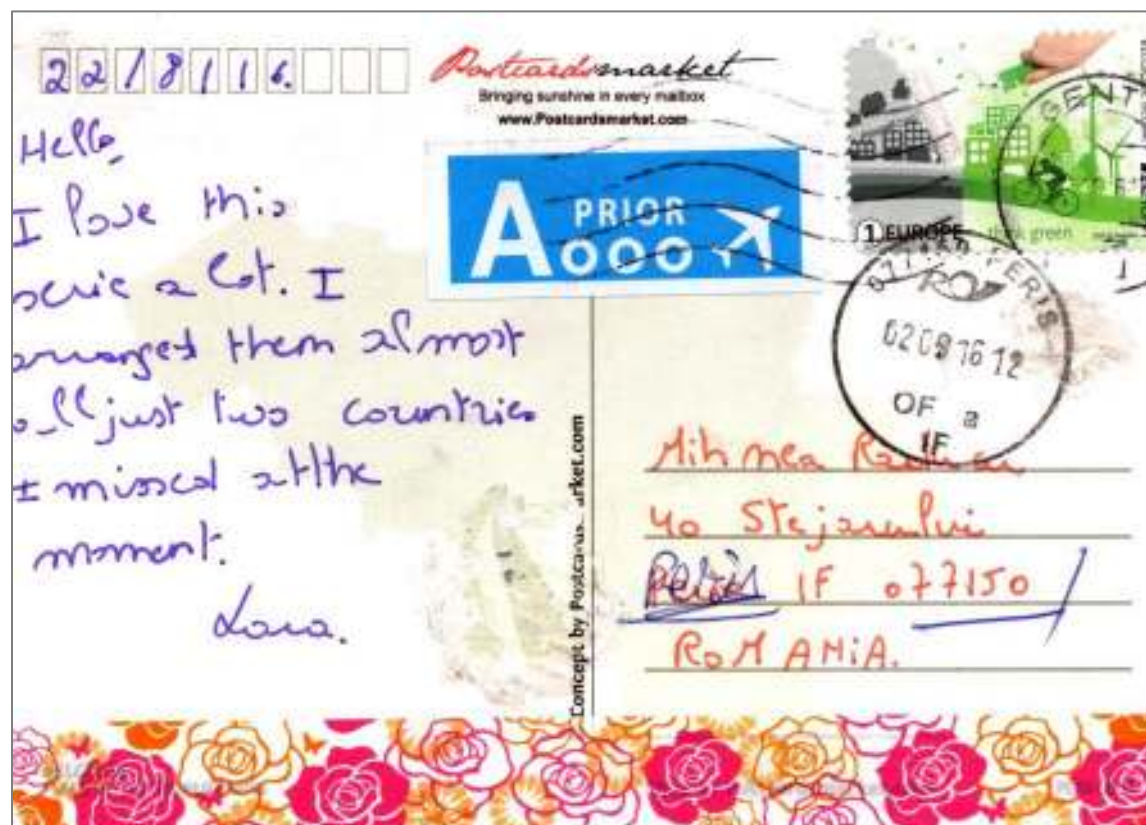 22/8/16.
Postcardsmarket
Bringing sunshine in every mailbox
www.Postcardsmarket.com
Hello,
I love this
serie a lot. I
arranged them almost
all just two countries
I missed at the
moment.
Lara.
A PRIOR
GENT
1 EUROPE think green
077150 PERIS
02 09 16 12
OF a
IF
Concept by Postcardsmarket.com
Mihnea
40 Stejarului
Peris IF 077150
ROMANIA.